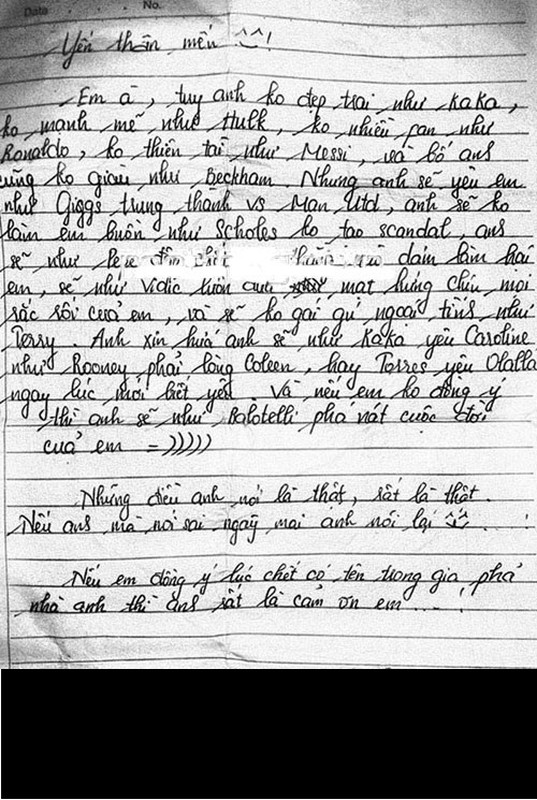 Date No.
Yến thân mến ^^!
Em à, tuy anh ko đẹp trai như KaKa,
ko mạnh mẽ như Hulk, ko nhiều fan như
Ronaldo, ko thiên tài như Messi, và bố anh
cũng ko giàu như Beckham. Nhưng anh sẽ yêu em
như Giggs trung thành vs Man Utd, anh sẽ ko
làm em buồn như Scholes ko tạo scandal, anh
sẽ như dám làm hại
em, sẽ như Vidic luôn mạt hứng chịu mọi
rắc rối của em, và sẽ ko gái gú ngoại tình như
Terry. Anh xin hứa anh sẽ như KaKa yêu Caroline
như Rooney phải lòng Coleen, hay Torres yêu Olalla
ngay lúc mới biết yêu. Và nếu em ko đồng ý
thì anh sẽ như Balotelli phá nát cuộc đời
của em =)))))
Những điều anh nói là thật, rất là thật.
Nếu anh mà nói sai ngày mai anh nói lại ^^ ....!
Nếu em đồng ý lúc chết có tên trong gia phả
nhà anh thì anh rất là cảm ơn em ....!